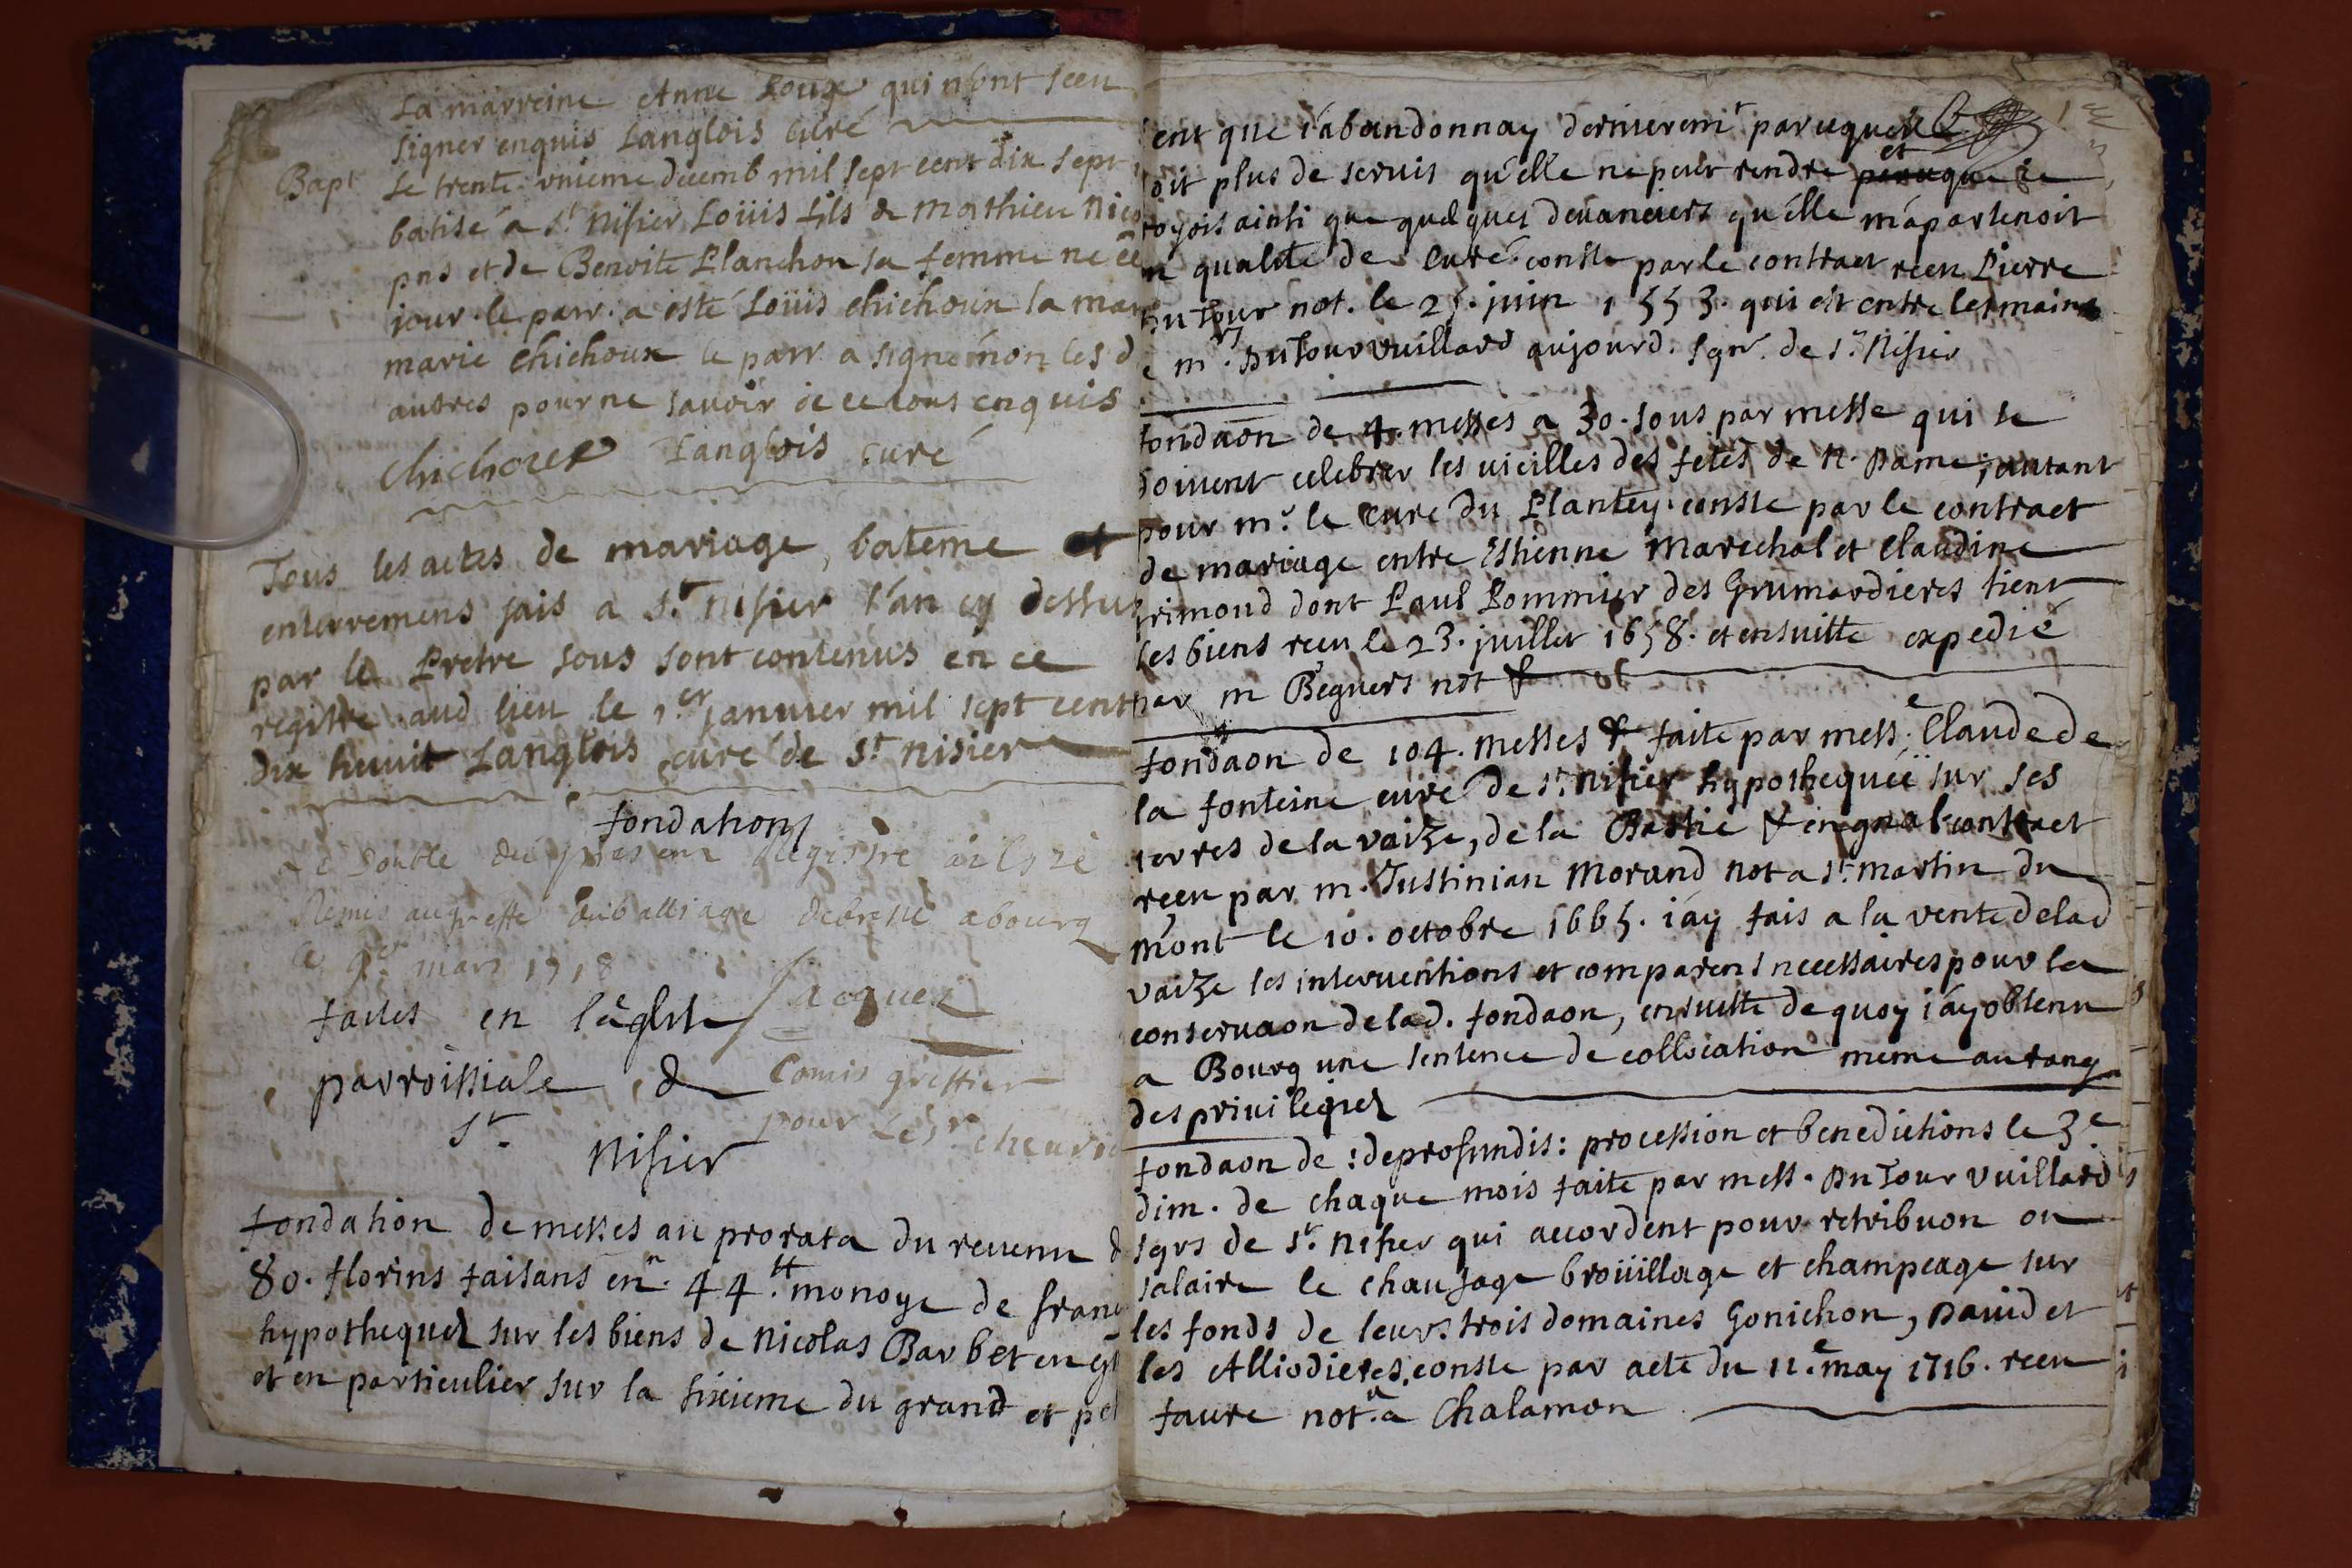 La marreine Anne Loux qui n'ont sceu
signer enquis Langlois curé
Bapt Le trente-unieme decemb mil sept cent dix sept
batisé a St. Nisier Loüis fils de Mathieu
pns et de Benoite Planchon sa femme né
jour. le parr. a esté Loüis Chichoux la mar
marie Chichoux le parr a signé non les d
autres pour ne savoir de ce tous enquis
Chichoux Langlois curé
Tous les actes de mariage, bateme et
enterremens fais a St. Nisier l'an cy dessus
par le Pretre sous sont contenus en ce
regitre aud lieu le 1.er janvier mil sept cent
dix huuit Langlois curé de St. nisier
fondations
Le Double du present Registre a esté
Remis au greffe du balliage de bresse a bourg
ce mars 1718
faites en l'eglise Jacquet
parroissiale de Comis greffier
St. pour Le Sr
Nisier
fondation de messes au prorata du revenu d
80. florins faisans enn. 44.lt monoye de fran
hypothequés sur les biens de Nicolas Barbet en
et en particulier sur la sixieme du grand et pe
ent que i'abandonnay dernieremt par
doit plus de servis qu'elle ne peut rendre et peruque je
royois ainsi que quelques devanciers qu'elle m'apartenoit
n qualité de curé conste par le contract receu Pierre
Du Tour not. le 25. juin 1553. qui est entre les mains
e mr. DuTour Vuillard aujourd. sgnr. de St. Nisier
fondaon de 4. messes a 30. sous par messe qui se
doivent celebrer les vieilles des fetes de N. Dame; autant
pour mr. le curé du Plantey. conste par le contract
de mariage entre Estienne Marechal et Claudine
grimond dont Paul Pommier des Grumardieres tient
les biens receu le 23. juillet 1658. et ensuitte expedié
par m Beguers not
fondaon de 104. messes faite par mess.e Claude de
la fonteine curé de St. Nisier hypothequéë sur ses
terres de la vaize, de la Bastie & en gnal contract
receu par m. Justinian Morand not a St. martin du
mont le 10. octobre 1665. i'ay fais a la vente de lad
vaize les interventions et comparens necessaires pour la
conservaon de lad. fondaon, ensuitte de quoy i'ay obtenu
a Bourg une sentence de collocation meme au rang
des privilegiés
fondaon de: deprofundis: procession et benedictions le 3.e
dim. de chaque mois faite par mess. DuTour Vuillard
sgrs de St. Nisier qui accordent pour retribuon ou
salaire le chaufage broüillage et champeage sur
les fonds de leurs trois domaines Gonichon, David et
les Alliodieres, conste par acte du 11.e may 1716. receu
faure not. a Chalamon